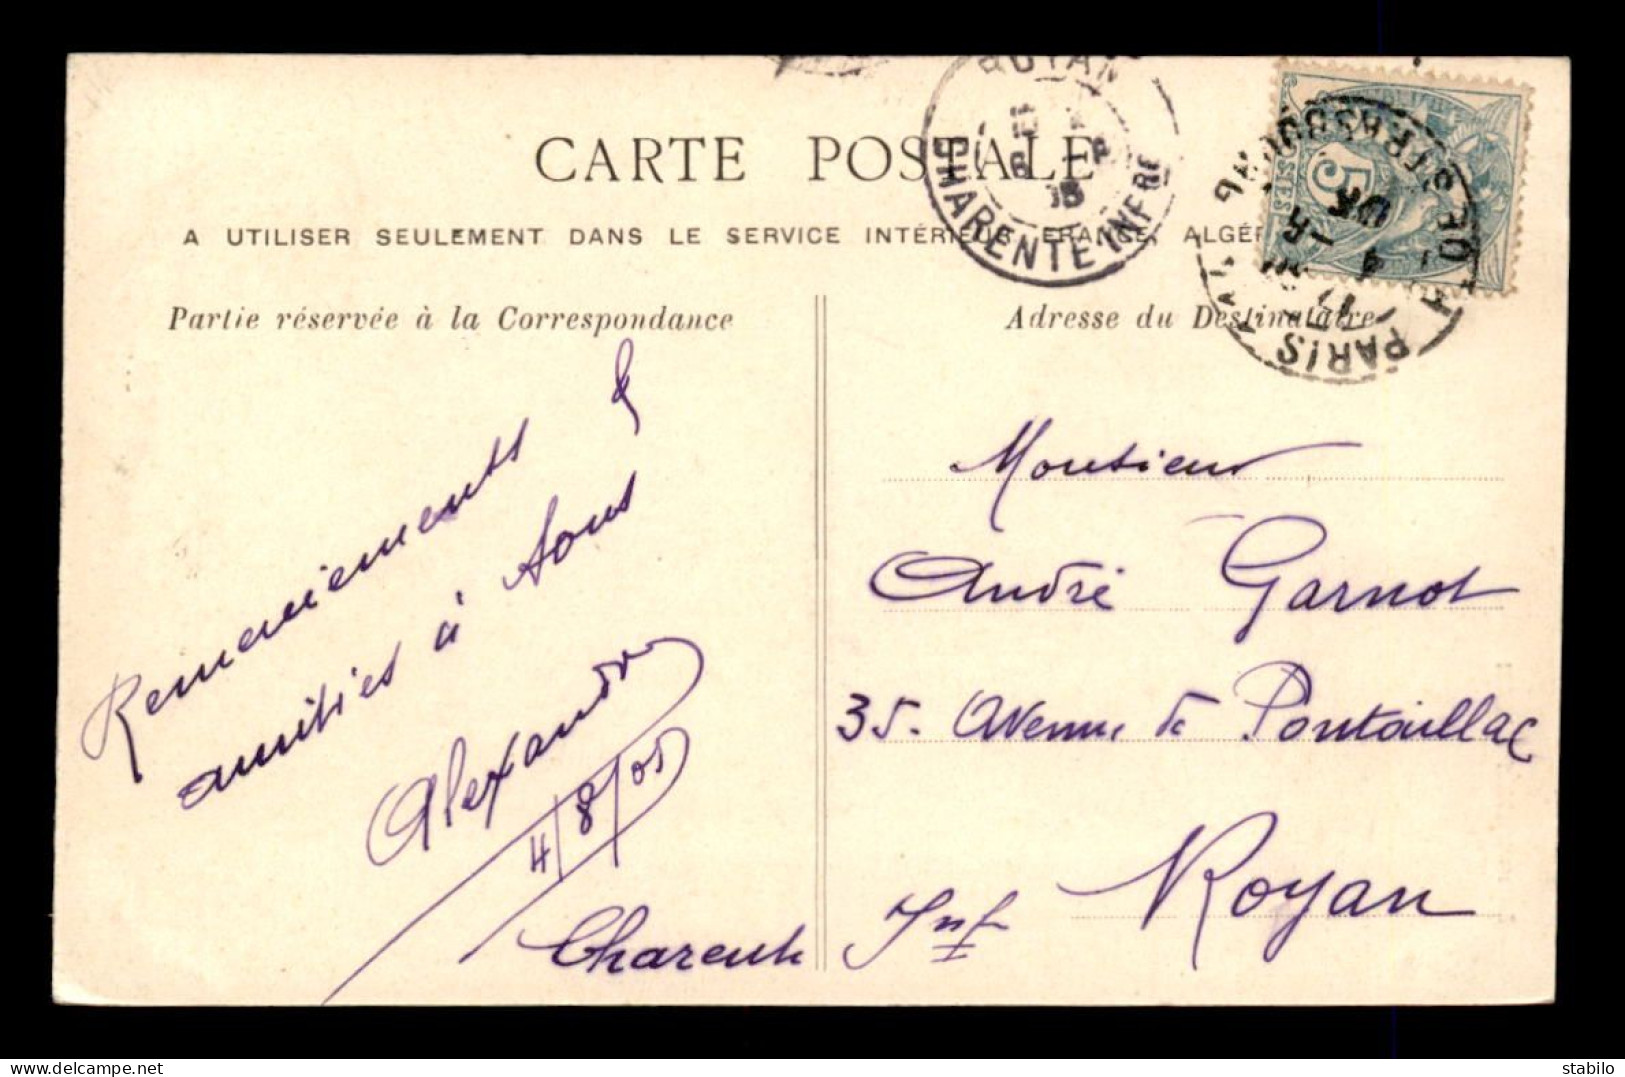 ROYAN
CHARENTE INFRE
CARTE POSTALE
A UTILISER SEULEMENT DANS LE SERVICE INTÉRIEUR FRANCE, ALGÉR
5
PARIS
R. DE STRASBOURG
Partie réservée à la Correspondance
Adresse du Destinataire
Remerciements &
amitiés à Tous
Alexandre
4/8/05
Monsieur
André Garnot
35. Avenue de Pontaillac
Royan
Charente Inf
delcampe.net
stabilo